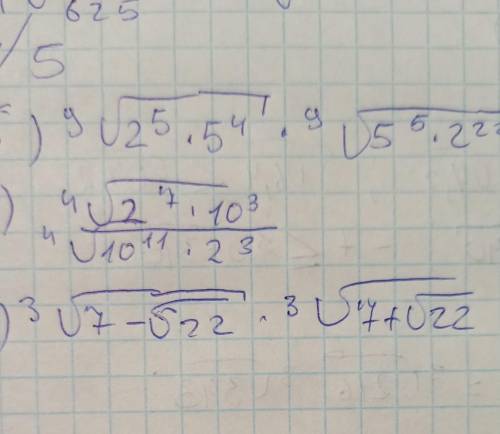 625
5
) ⁹√(2⁵ · 5⁴) · ⁹√(5⁵ · 2²²
) ⁴√(2⁷ · 10³)
⁴√(10¹¹ · 2³)
) ³√(7 - √22) · ³√(7 + √22)